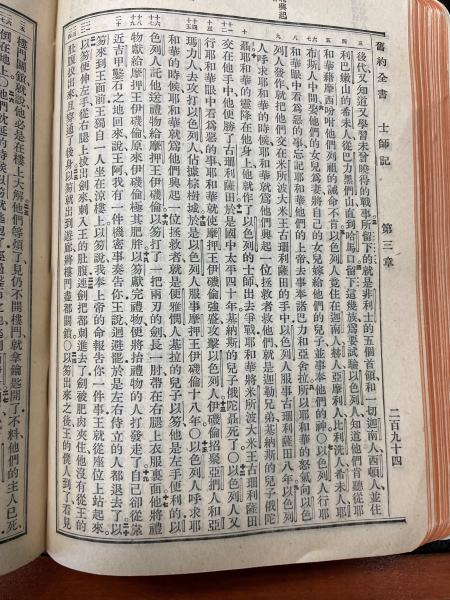 舊約全書　士師記　第三章　二百九十四
後代又知道又學習未曾曉得的戰事所留下的就是非利士的五個首領和一切迦南人、西頓人、並住
利巴嫩山的希未人、從巴力黑們山直到哈馬口留下這幾族爲要試驗以色列人知道他們肯聽從耶
和華藉摩西吩咐他們列祖的誡命不肯以色列人竟住在迦南人、赫人、亞摩利人、比利洗人、希未人、耶
布斯人中間娶他們的女兒爲妻將自己的女兒嫁給他們的兒子並事奉他們的神〇以色列人行耶
和華眼中看爲惡的事忘記耶和華他們的上帝去事奉諸巴力和亞舍拉所以耶和華的怒氣向以色
列人發作就把他們交在米所波大米王古珊利薩田的手中以色列人服事古珊利薩田八年以色列
人呼求耶和華的時候耶和華就爲他們興起一位拯救者救他們就是迦勒兄弟基納斯的兒子俄陀
聶耶和華的靈降在他身上他就作了以色列的士師出去爭戰耶和華將米所波大米王古珊利薩田
交在他手中他便勝了古珊利薩田於是國中太平四十年基納斯的兒子俄陀聶死了〇以色列人又
行耶和華眼中看爲惡的事耶和華就使摩押王伊磯倫強盛攻擊以色列人伊磯倫招聚亞捫人和亞
瑪力人去攻打以色列人佔據棕樹城於是以色列人服事摩押王伊磯倫十八年〇以色列人呼求耶
和華的時候耶和華就爲他們興起一位拯救者就是便雅憫人基拉的兒子以笏他是左手便利的以
色列人託他送禮物給摩押王伊磯倫以笏打了一把兩刃的劍長一肘帶在右腿上衣服裏面他將禮
物獻給摩押王伊磯倫原來伊磯倫極其肥胖以笏獻完禮物便將抬禮物的人打發走了自己卻從靠
近吉甲鑿石之地回來說王阿我有一件機密事奏告你王說迴避罷於是左右侍立的人都退去了以
笏來到王面前王獨自一人坐在涼樓上以笏說我奉上帝的命報告你一件事王就從座位上站起來
以笏便伸左手從右腿上拔出劍來刺入王的肚腹連劍把都刺進去了劍被肥肉夾住他沒有從王的
肚腹拔出來且穿通了後身以笏就出到遊廊將樓門盡都關鎖〇以笏出來之後王的僕人到了看見
樓門關鎖就說他必是在樓上大解他們等煩了見仍不開樓門就拿鑰匙開了不料他們的主人已死、
倒在地上〇他們耽延的時候以笏就逃跑了